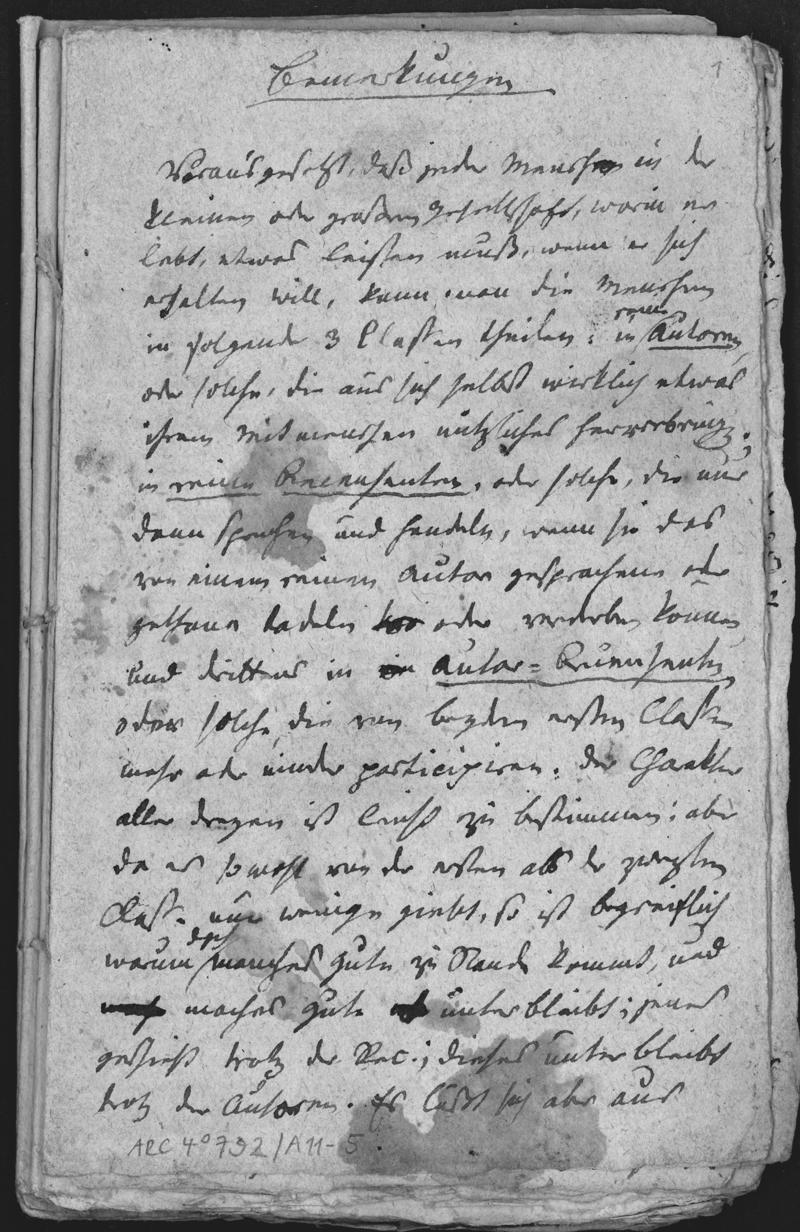 1
Bemerkungen
Vorausgesetzt, daß jeder Mensch in der
kleinen oder großen Gesellschaft, worin er
lebt, etwas leisten muß, wenn er sich
erhalten will, kann man die Menschen
in folgende 3 Classen theilen: in reine Autoren
oder solche, die aus sich selbst wirklich etwas
ihrem Mitmenschen nützliches hervorbringen;
in reine Recensenten, oder solche, die nur
dann sprechen und handeln, wenn sie das
von einem reinen Autor gesprochene oder
gethane tadeln oder verderben können
und drittens in Autor=Recensenten
oder solche, die von beyden ersten Classen
mehr oder minder participiren. Der Charakter
aller dreyen ist leicht zu bestimmen; aber
da es sowohl von der ersten als der zweyten
Classe nur wenige giebt, so ist begreiflich
warum doch manches gute zu Stande kommt, und
maches gute unterbleibt; jenes
geschieht trotz der Rec.; dieses unterbleibt
trotz der Autoren. Es läßt sich aber aus
ARC 4° 792/A11-5